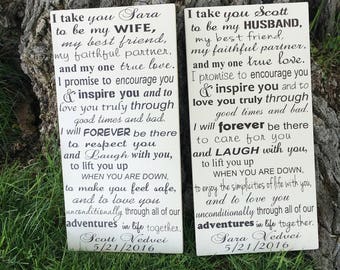 I take you Sara
to be my WIFE,
my best friend,
my faithful partner,
and my one true love.
I promise to encourage you
& inspire you and to
love you truly through
good times and bad.
I will FOREVER be there
to respect you
and Laugh with you,
to lift you up
WHEN YOU ARE DOWN,
to make you feel safe,
and to love you
unconditionally through all of our
adventures in life together.
Scott Vedvei
5/21/2016
I take you Scott
to be my HUSBAND,
my best friend,
my faithful partner,
and my one true love.
I promise to encourage you
& inspire you and to
love you truly through
good times and bad.
I will forever be there
to care for you
and LAUGH with you,
to lift you up
WHEN YOU ARE DOWN,
to enjoy the simplicities of life with you,
and to love you
unconditionally through all of our
adventures in life together.
Sara Vedvei
5/21/2016